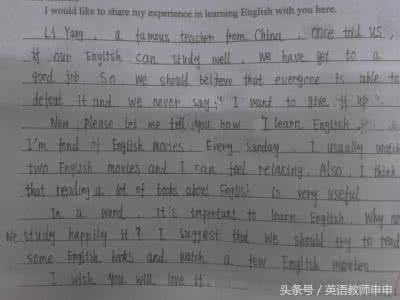 I would like to share my experience in learning English with you here.
Li Yang, a famous teacher from China, once told us,
if our English can study well, we have get to a
good job. So we should believe that everyone is able to
defeat it and we never say: "I want to give it up".
Now, please let me tell you how I learn English,
I'm fond of English movies. Every Sunday, I usually watch
two English movies and I can feel relaxing. Also, I think
that reading a lot of books about English is very useful
In a word, It's important to learn English. Why not
we study happily it? I suggest that we should try to read
some English books and watch a few English movies
I wish you will love it.
头条号/英语教师申申